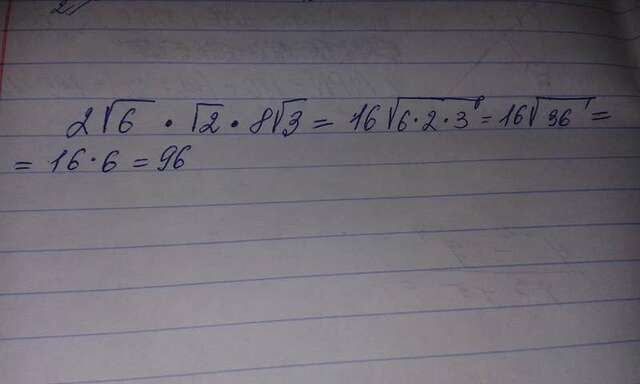 2√6 · √2 · 8√3 = 16√6·2·3 = 16√36 =
= 16 · 6 = 96